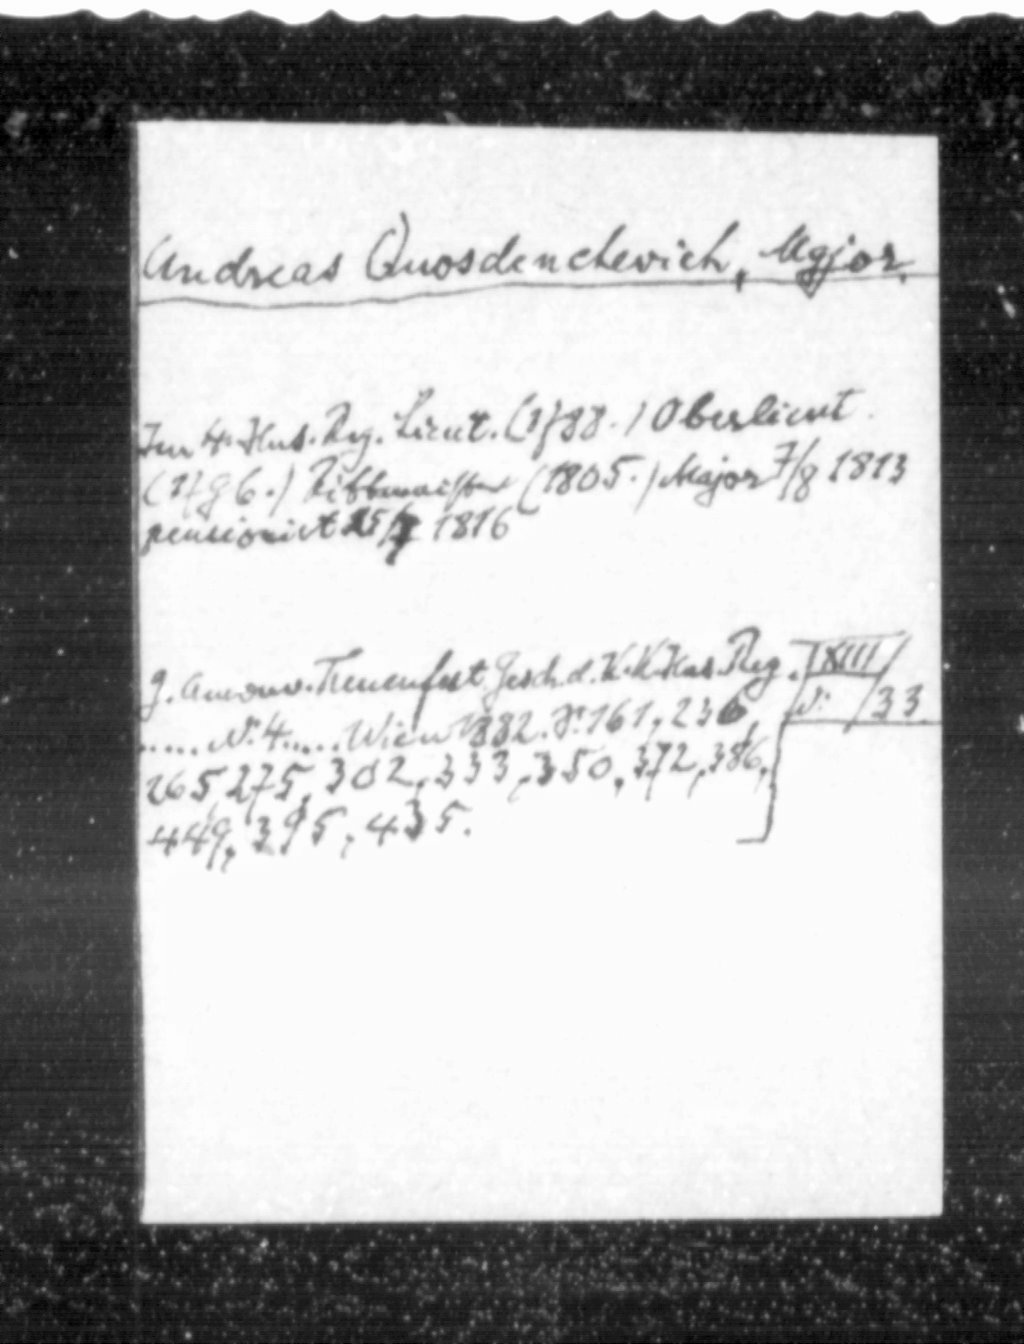 Andreas Quosdenchevich, Major.
Im 4. Hus. Reg. Lieut. (1788.) Oberlieut.
(1796.) Rittmeister (1805.) Major 7/8 1813
pensionirt 1816
Treuenfest Gesch. d. K. K. Hus. Reg. XIII
..... Nr. 4..... Wien 1882. S. 161, 236, Nr. 33
265, 275, 302, 333, 350, 372, 386,
449, 395, 435.